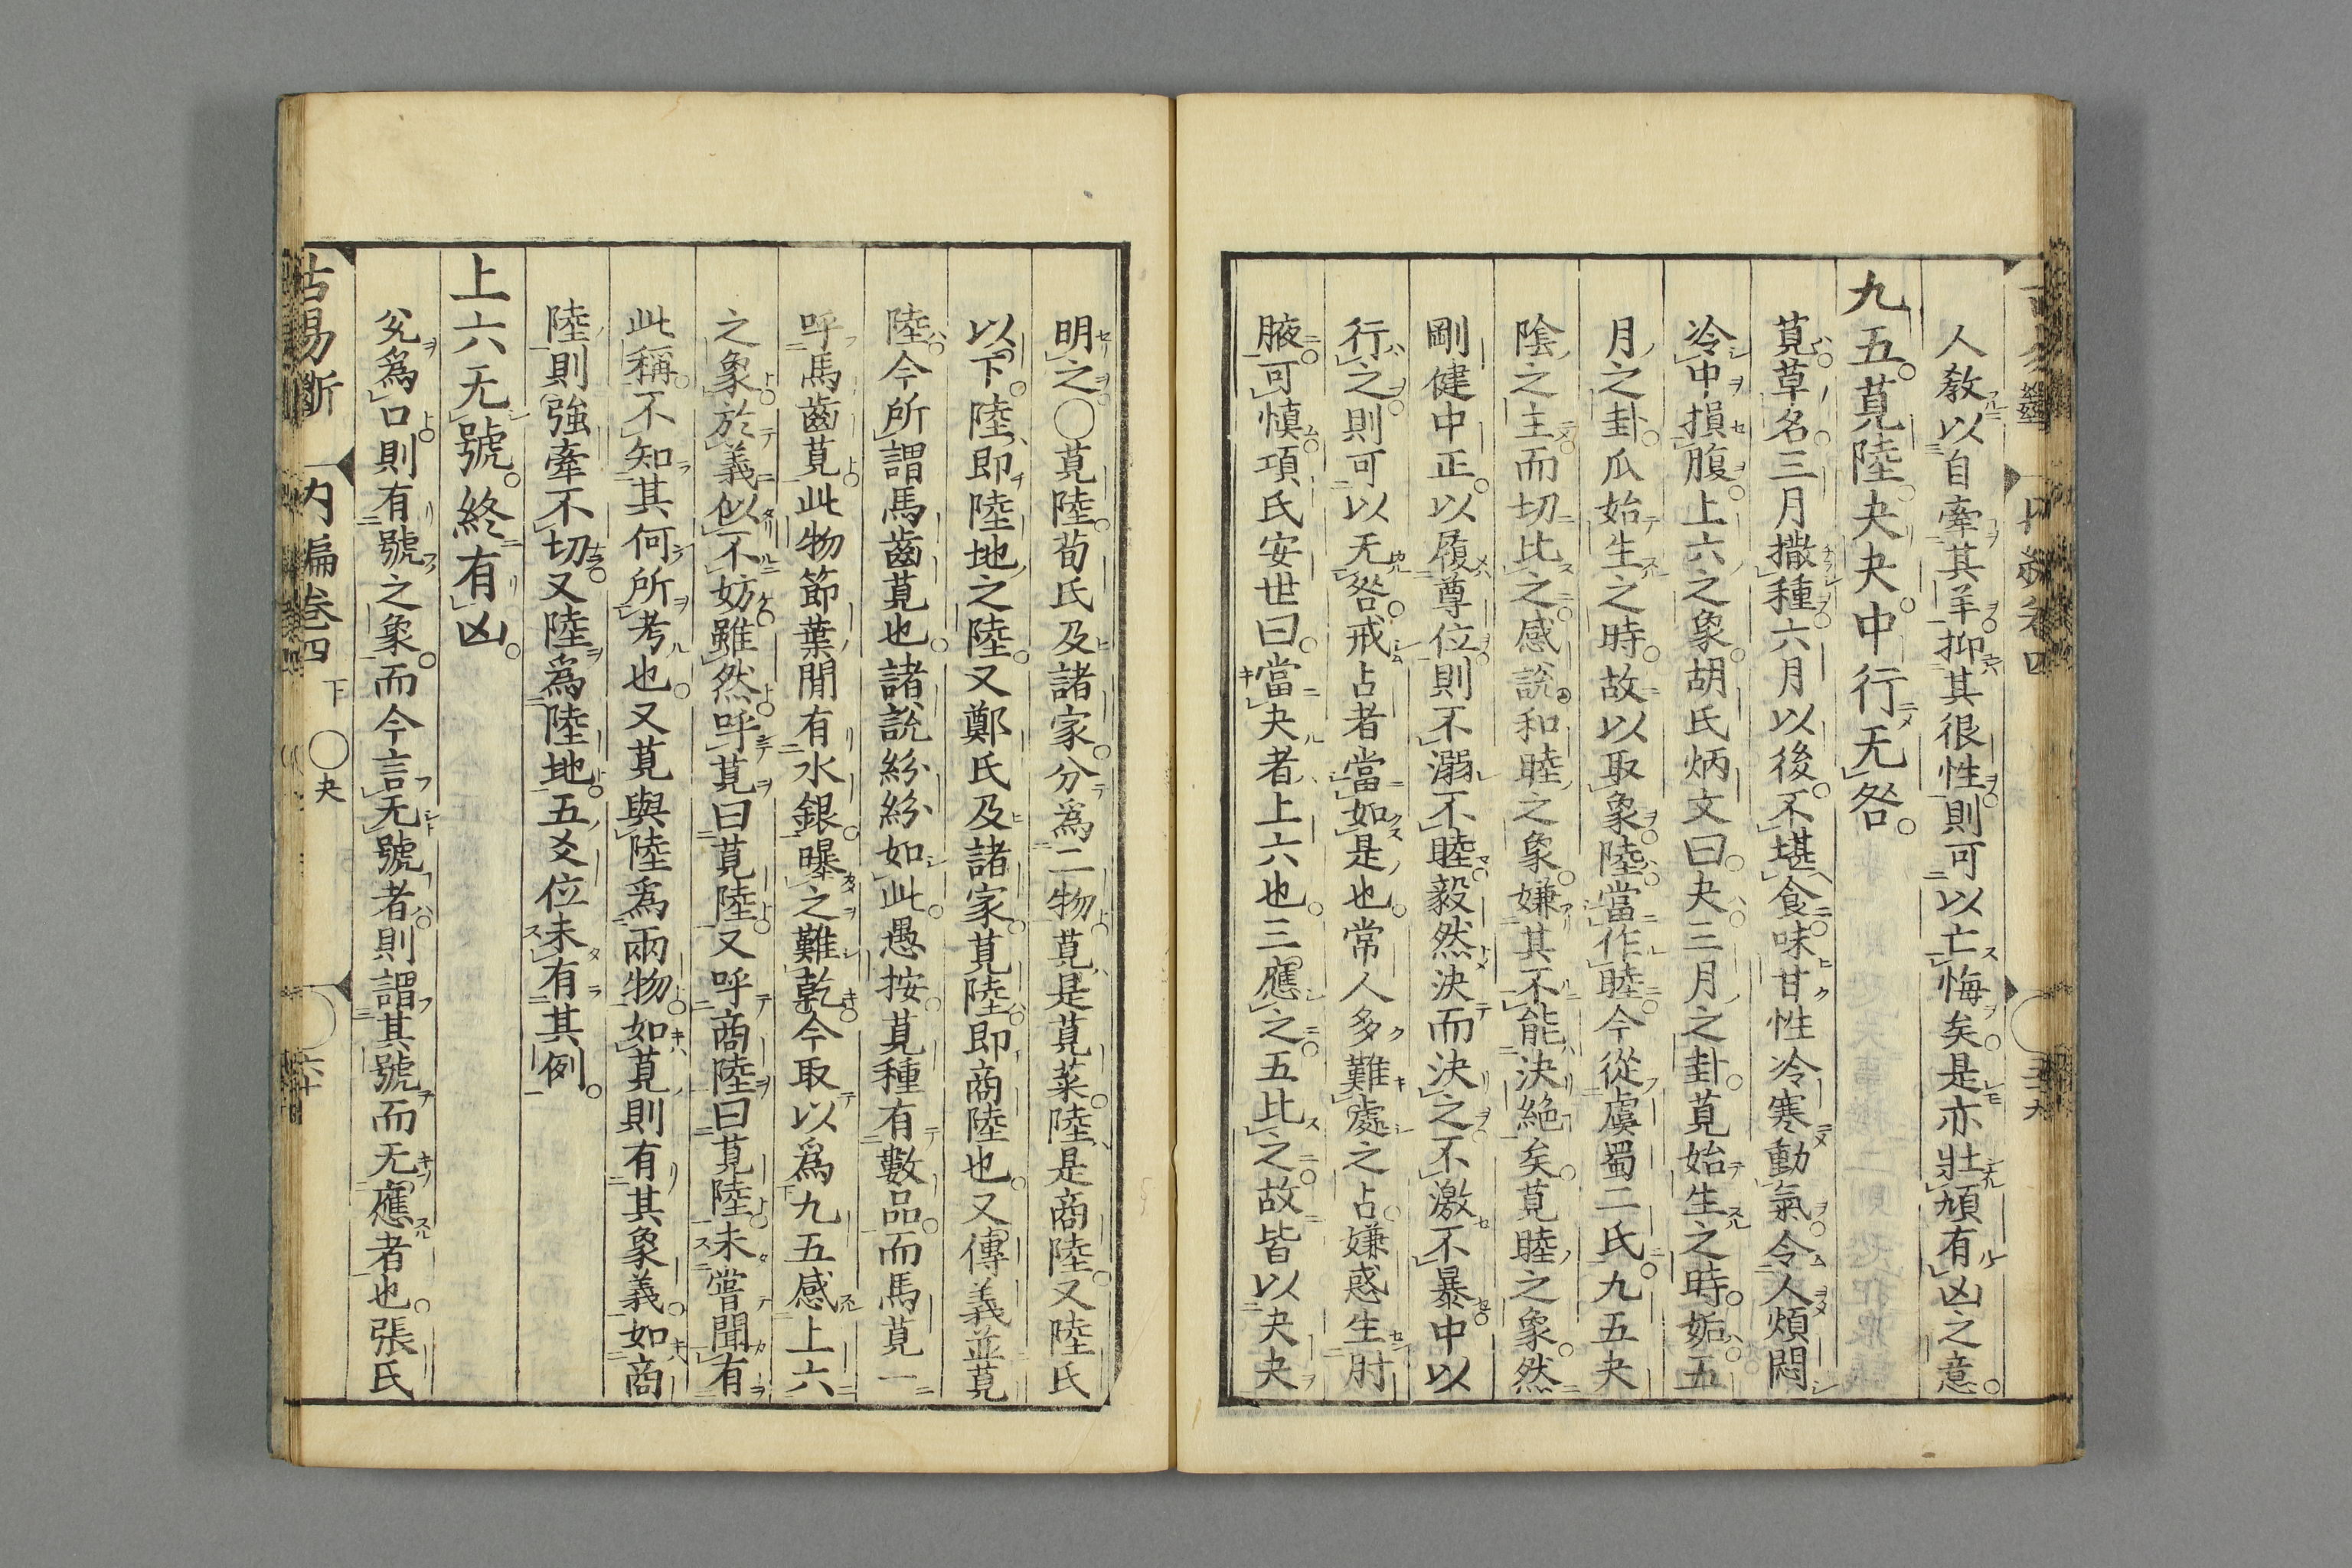 人教以自牽其羊抑其很性則可以亡悔矣是亦壯頄有凶之意
九五莧陸夬夬中行无咎
莧草名三月撒種六月以後不堪食味甘性冷寒動氣令人煩悶
冷中損腹上六之象胡氏炳文曰夬三月之卦莧始生之時姤五
月之卦瓜始生之時故以取象陸當作睦今從虞蜀二氏九五夬
陰之主而切比之感說和睦之象嫌其不能決絶矣莧睦之象然
剛健中正以履尊位則不溺不睦毅然決而決之不激不暴中以
行之則可以无咎戒占者當如是也常人多難處之占嫌惑生肘
腋可慎項氏安世曰當夬者上六也三應之五比之故皆以夬夬
明之○莧陸荀氏及諸家分為二物莧是莧菜陸是商陸又陸氏
以下陸即陸地之陸又鄭氏及諸家莧陸即商陸也又傳義並莧
陸今所謂馬齒莧也諸說紛紛如此愚按莧種有數品而馬莧一
呼馬齒莧此物節葉間有水銀曝之難乾今取以爲九五感上六
之象於義似不妨雖然呼莧曰莧陸又呼商陸曰莧陸未嘗聞有
此稱不知其何所考也又莧與陸爲兩物如莧則有其象義如商
陸則強牽不切又陸爲陸地五爻位未有其例
上六无號終有凶
兌爲口則有號之象而今言无號者則謂其號而无應者也張氏
古易斷 內編卷四 下 ○夬 六十